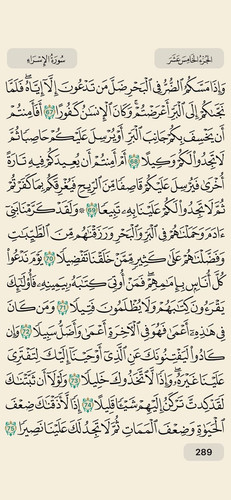 سُورَةُ الإِسْرَاءِ
الجُزْءُ الخَامِسَ عَشَرَ
وَإِذَا مَسَّكُمُ ٱلضُّرُّ فِي ٱلْبَحْرِ ضَلَّ مَن تَدْعُونَ إِلَّآ إِيَّاهُ ۖ فَلَمَّا
نَجَّىٰكُمْ إِلَى ٱلْبَرِّ أَعْرَضْتُمْ ۚ وَكَانَ ٱلْإِنسَٰنُ كَفُورًا 67 أَفَأَمِنتُمْ
أَن يَخْسِفَ بِكُمْ جَانِبَ ٱلْبَرِّ أَوْ يُرْسِلَ عَلَيْكُمْ حَاصِبًا ثُمَّ
لَا تَجِدُوا۟ لَكُمْ وَكِيلًا 68 أَمْ أَمِنتُمْ أَن يُعِيدَكُمْ فِيهِ تَارَةً
أُخْرَىٰ فَيُرْسِلَ عَلَيْكُمْ قَاصِفًا مِّنَ ٱلرِّيحِ فَيُغْرِقَكُم بِمَا كَفَرْتُمْ ۙ
ثُمَّ لَا تَجِدُوا۟ لَكُمْ عَلَيْنَا بِهِۦ تَبِيعًا 69 ۞ وَلَقَدْ كَرَّمْنَا بَنِىٓ
ءَادَمَ وَحَمَلْنَٰهُمْ فِي ٱلْبَرِّ وَٱلْبَحْرِ وَرَزَقْنَٰهُم مِّنَ ٱلطَّيِّبَٰتِ
وَفَضَّلْنَٰهُمْ عَلَىٰ كَثِيرٍ مِّمَّنْ خَلَقْنَا تَفْضِيلًا 70 يَوْمَ نَدْعُوا۟
كُلَّ أُنَاسٍۭ بِإِمَٰمِهِمْ ۖ فَمَنْ أُوتِىَ كِتَٰبَهُۥ بِيَمِينِهِۦ فَأُو۟لَٰٓئِكَ
يَقْرَءُونَ كِتَٰبَهُمْ وَلَا يُظْلَمُونَ فَتِيلًا 71 وَمَن كَانَ
فِي هَٰذِهِۦٓ أَعْمَىٰ فَهُوَ فِي ٱلْءَاخِرَةِ أَعْمَىٰ وَأَضَلُّ سَبِيلًا 72 وَإِن
كَادُوا۟ لَيَفْتِنُونَكَ عَنِ ٱلَّذِىٓ أَوْحَيْنَآ إِلَيْكَ لِتَفْتَرِىَ
عَلَيْنَا غَيْرَهُۥ ۖ وَإِذًا لَّٱتَّخَذُوكَ خَلِيلًا 73 وَلَوْلَآ أَن ثَبَّتْنَٰكَ
لَقَدْ كِدتَّ تَرْكَنُ إِلَيْهِمْ شَيْـًٔا قَلِيلًا 74 إِذًا لَّأَذَقْنَٰكَ ضِعْفَ
ٱلْحَيَوٰةِ وَضِعْفَ ٱلْمَمَاتِ ثُمَّ لَا تَجِدُ لَكَ عَلَيْنَا نَصِيرًا 75
289